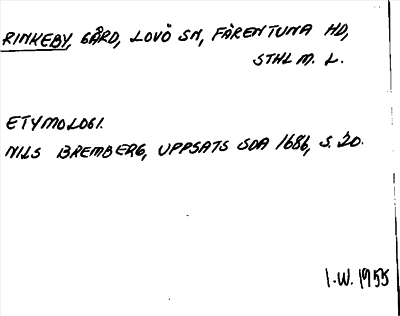 RINKEBY, GÅRD, LOVÖ SN, FÄRENTUNA HD,
STHLM. L.
ETYMOLOGI.
NILS BREMBERG, UPPSATS SOA 1686, S. 20.
I.W. 1955